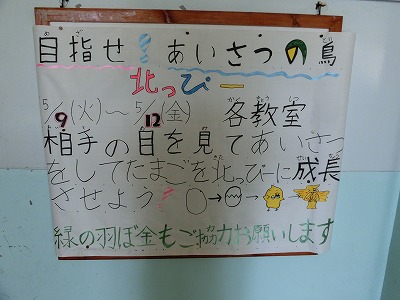 目指せ！あいさつの鳥
北っぴー
5/9(火)～5/12(金) 各教室
相手の目を見てあいさつ
をしてたまごを北っぴーに成長
させよう！〇→〇→→
緑の羽ぼ金もご協力お願いします